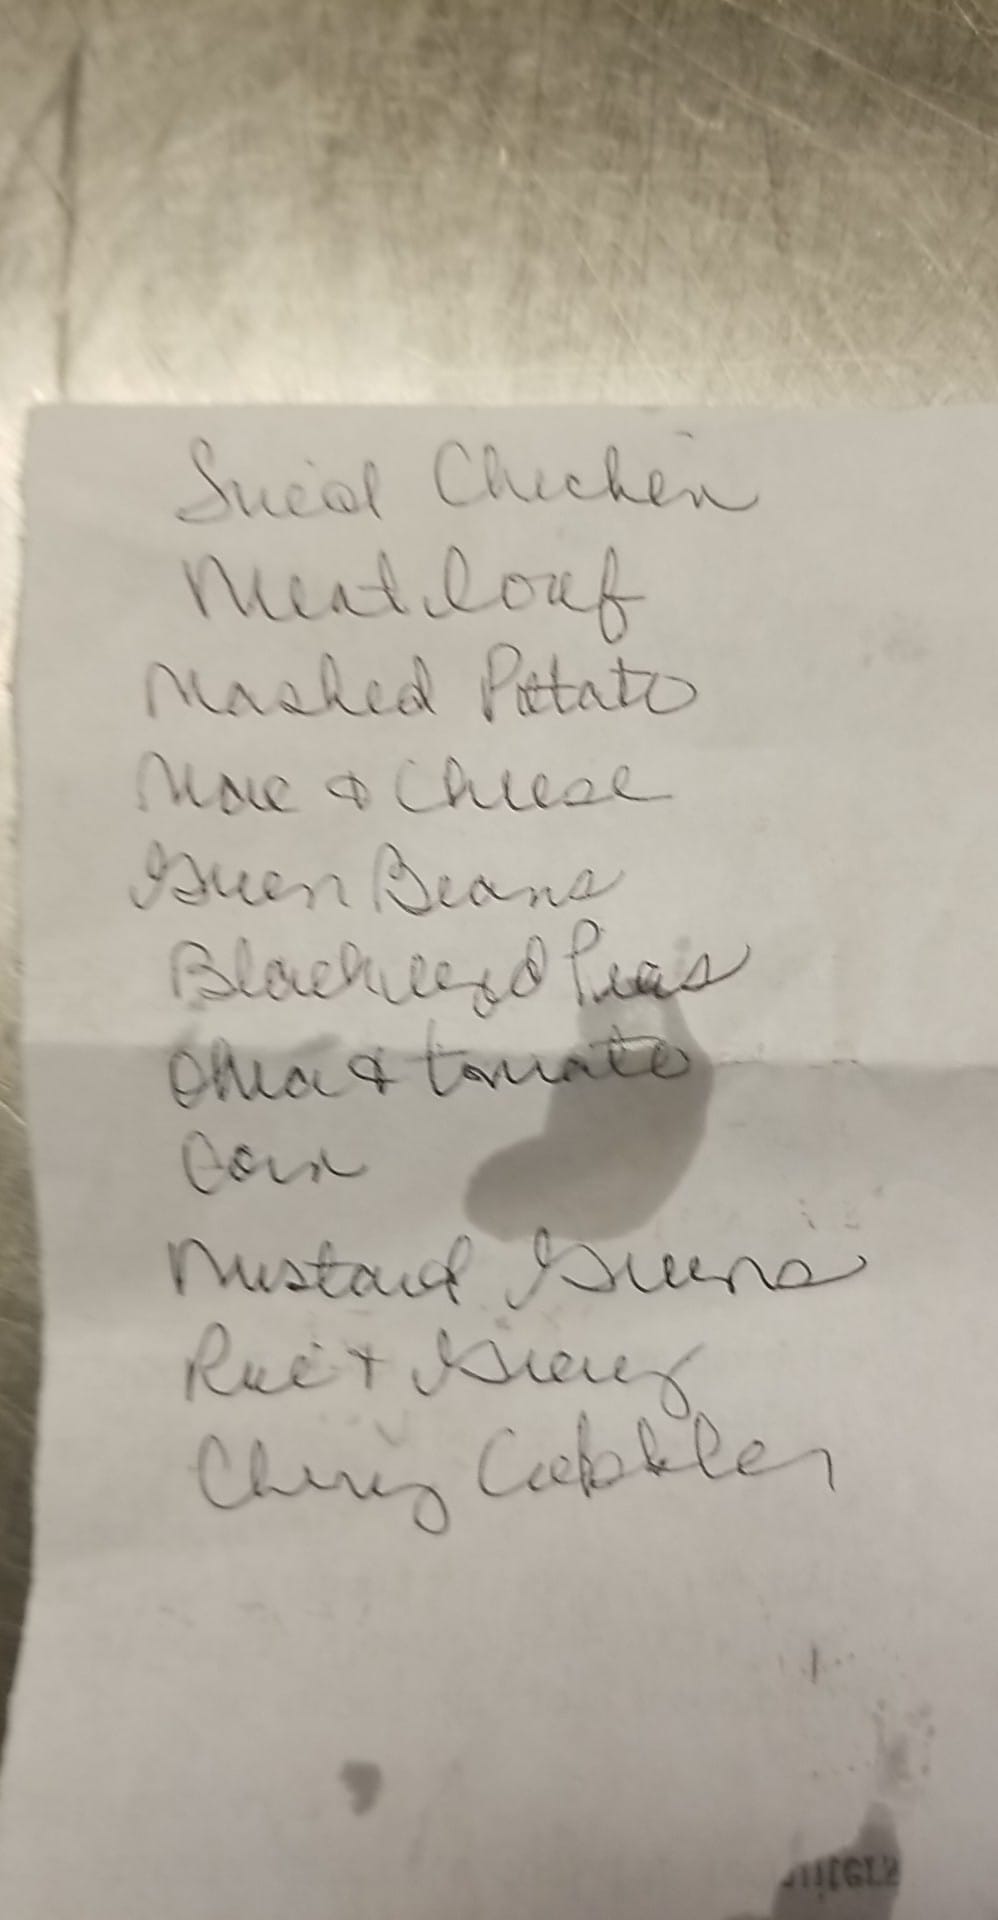 Fried Chicken
Meatloaf
Mashed Potato
Mac & Cheese
Green Beans
Blackeyed Peas
Okra & tomato
Corn
Mustard Greens
Rice + Gravy
Cherry Cobbler